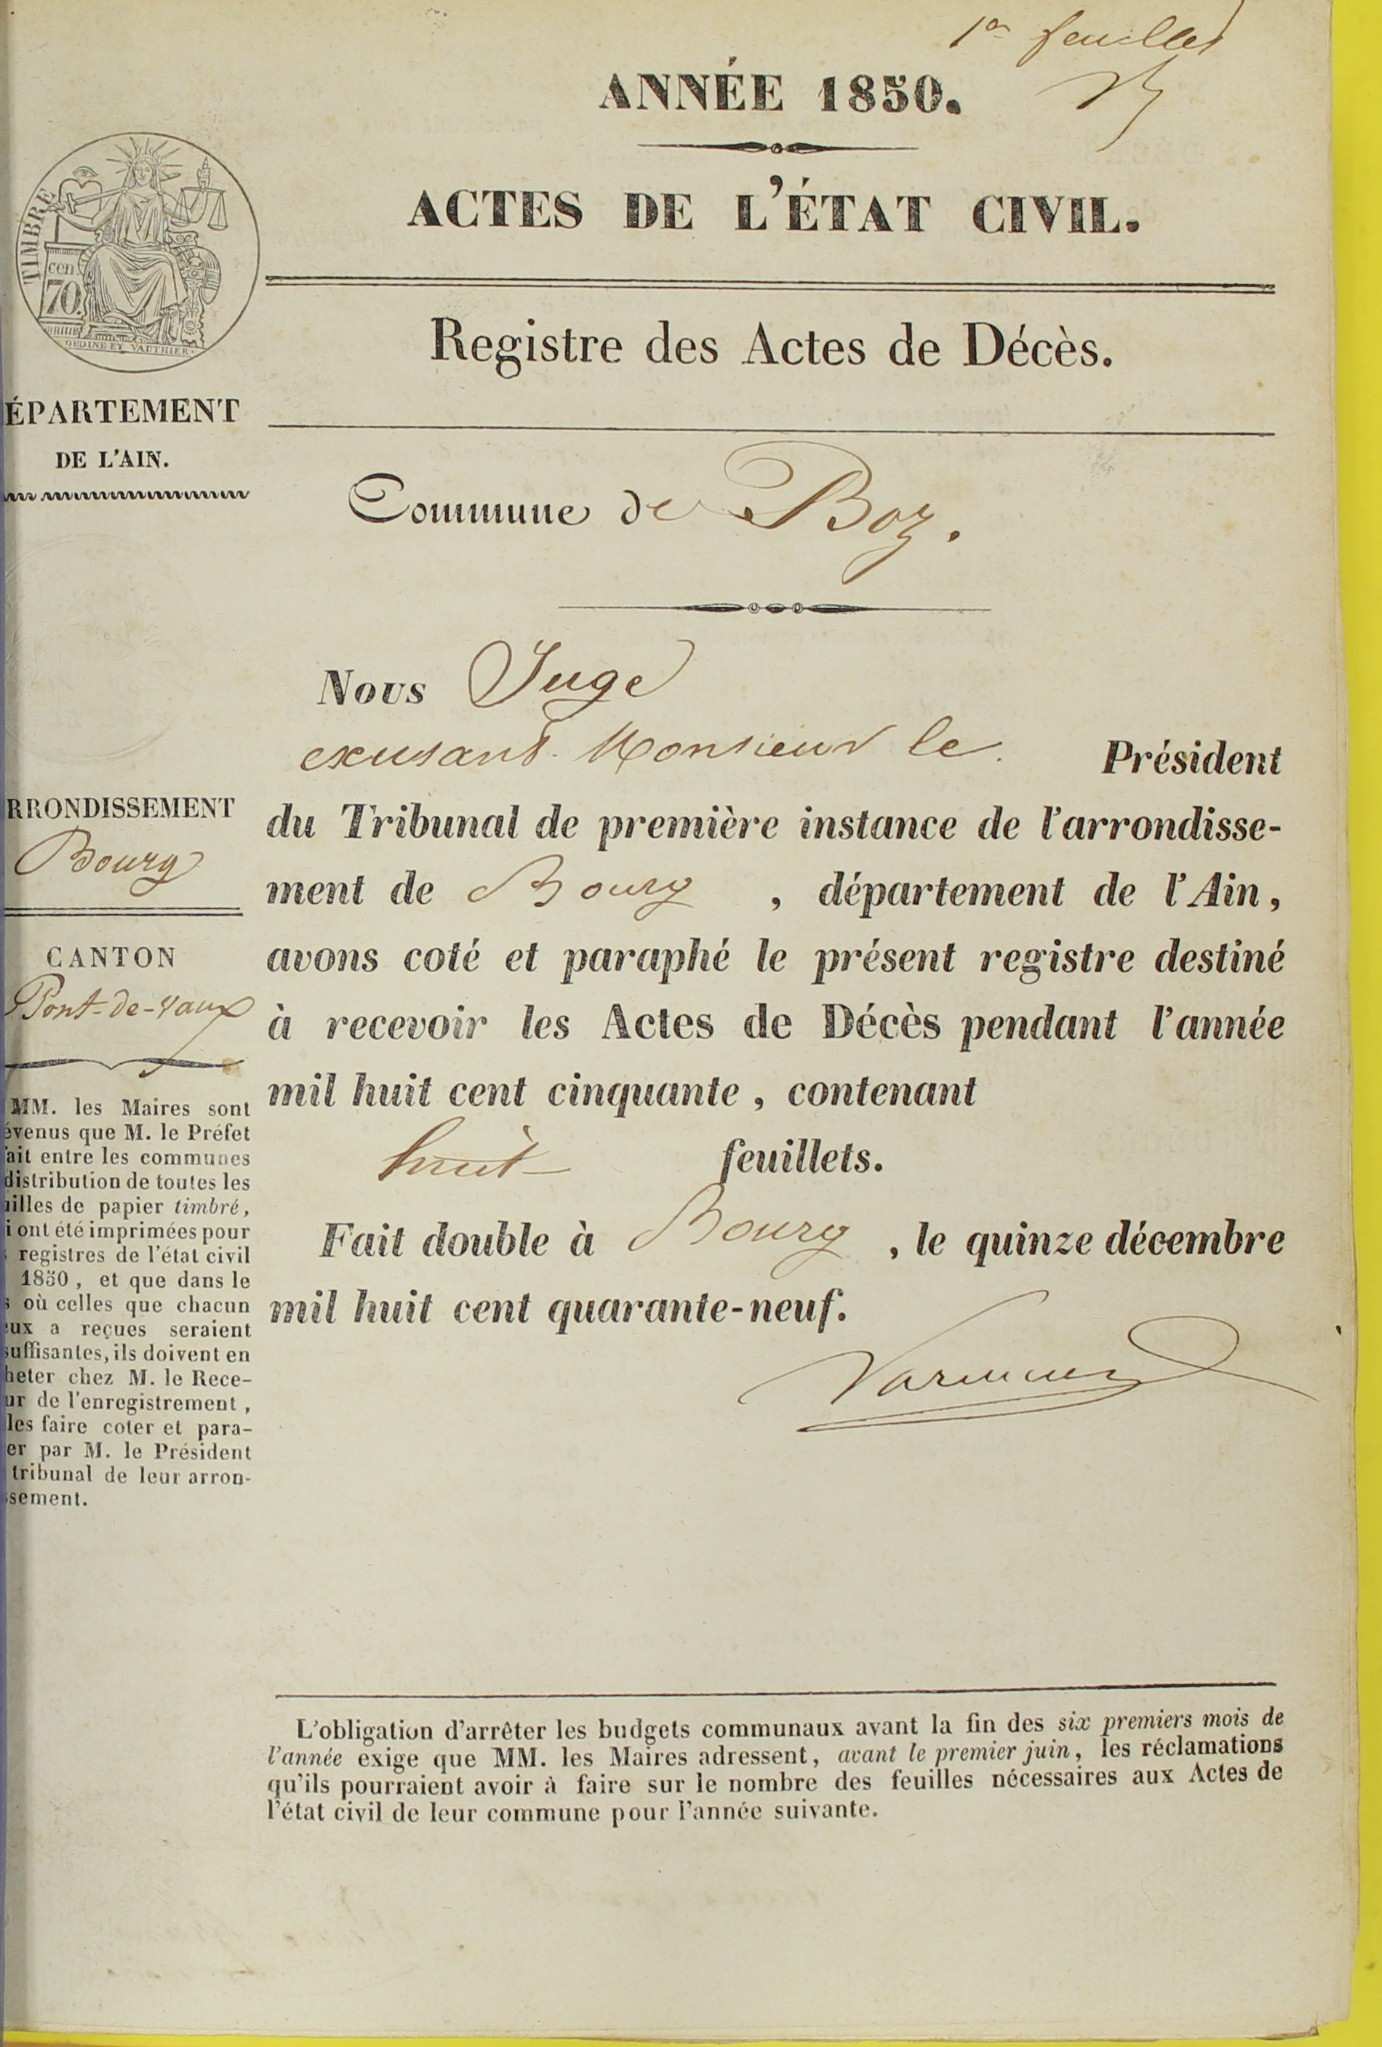 1er feuillet
ANNÉE 1850.
ACTES DE L'ÉTAT CIVIL.
TIMBRE
cen
70.
OUDINE ET VAUTHIER
Registre des Actes de Décès.
ÉPARTEMENT
DE L'AIN.
Commune de Boz.
Nous Juge
excusant Monsieur le Président
du Tribunal de première instance de l'arrondisse-
ment de Bourg, département de l'Ain,
avons coté et paraphé le présent registre destiné
à recevoir les Actes de Décès pendant l'année
mil huit cent cinquante, contenant
huit feuillets.
Fait double à Bourg, le quinze décembre
mil huit cent quarante-neuf.
RRONDISSEMENT
Bourg
CANTON
Pont-de-vaux
MM. les Maires sont
évenus que M. le Préfet
fait entre les communes
distribution de toutes les
uilles de papier timbré,
i ont été imprimées pour
s registres de l'état civil
1850, et que dans le
s où celles que chacun
eux a reçues seraient
suffisantes, ils doivent en
heter chez M. le Rece-
ur de l'enregistrement,
les faire coter et para-
er par M. le Président
tribunal de leur arron-
ssement.
L'obligation d'arrêter les budgets communaux avant la fin des six premiers mois de
l'année exige que MM. les Maires adressent, avant le premier juin, les réclamations
qu'ils pourraient avoir à faire sur le nombre des feuilles nécessaires aux Actes de
l'état civil de leur commune pour l'année suivante.